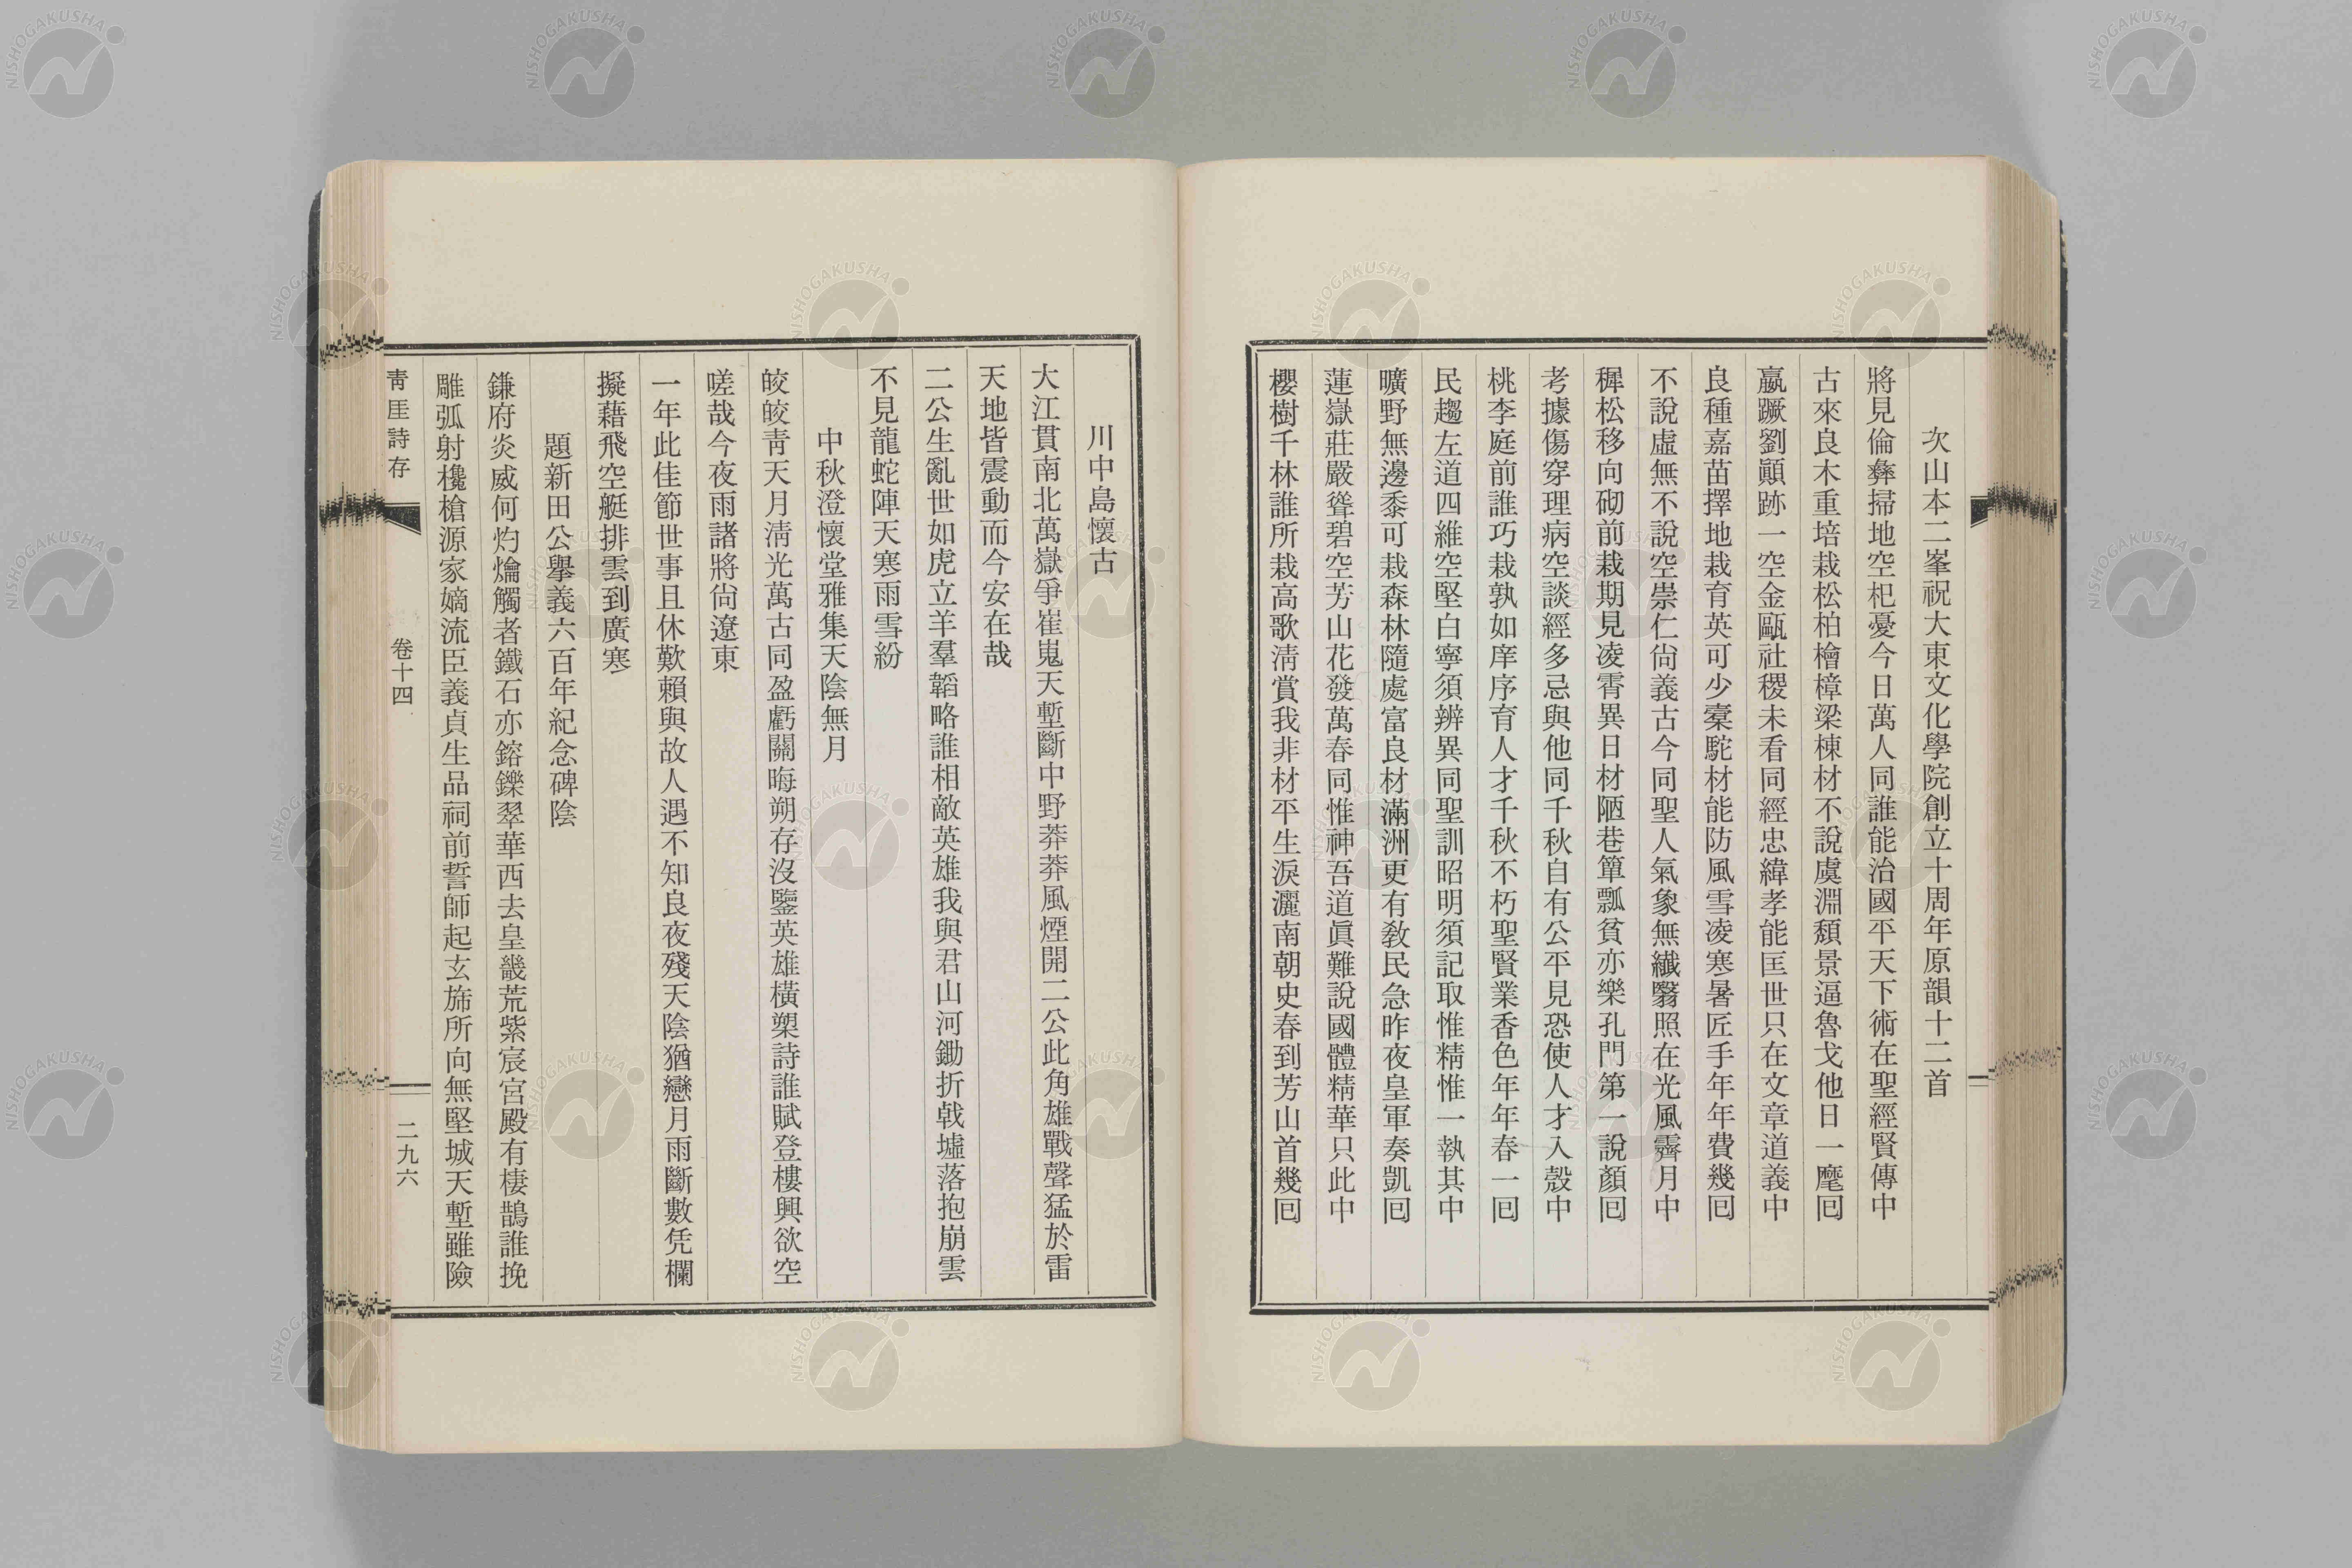 次山本二峯祝大東文化學院創立十周年原韻十二首
將見倫彝掃地空杞憂今日萬人同誰能治國平天下術在聖經賢傳中
古來良木重培栽松柏檜樟梁棟材不說虞淵頹景逼魯戈他日一麾回
嬴蹶劉顚跡一空金甌社稷未看同經忠緯孝能匡世只在文章道義中
良種嘉苗擇地栽育英可少槖駝材能防風雪凌寒暑匠手年年費幾回
不說虛無不說空崇仁尙義古今同聖人氣象無纖翳照在光風霽月中
穉松移向砌前栽期見凌霄異日材陋巷簞瓢貧亦樂孔門第一說顏回
考據傷穿理病空談經多忌與他同千秋自有公平見恐使人才入殼中
桃李庭前誰巧栽孰如庠序育人才千秋不朽聖賢業香色年年春一回
民趨左道四維空堅白寧須辨異同聖訓昭明須記取惟精惟一執其中
曠野無邊黍可栽森林隨處富良材滿洲更有敎民急昨夜皇軍奏凱回
蓮嶽莊嚴聳碧空芳山花發萬春同惟神吾道眞難說國體精華只此中
櫻樹千林誰所栽高歌淸賞我非材平生淚灑南朝史春到芳山首幾回
川中島懷古
大江貫南北萬嶽爭崔嵬天塹斷中野莽莽風煙開二公此角雄戰聲猛於雷
天地皆震動而今安在哉
二公生亂世如虎立羊羣韜略誰相敵英雄我與君山河鋤折戟墟落抱崩雲
不見龍蛇陣天寒雨雪紛
中秋澄懷堂雅集天陰無月
皎皎靑天月淸光萬古同盈虧關晦朔存沒鑒英雄橫槊詩誰賦登樓興欲空
嗟哉今夜雨諸將尙遼東
一年此佳節世事且休歎賴與故人遇不知良夜殘天陰猶戀月雨斷數凭欄
擬藉飛空艇排雲到廣寒
題新田公擧義六百年紀念碑陰
鎌府炎威何灼爚觸者鐵石亦鎔鑠翠華西去皇畿荒紫宸宮殿有棲鵲誰挽
雕弧射欃槍源家嫡流臣義貞生品祠前誓師起玄旆所向無堅城天塹雖險
靑厓詩存
卷十四
二九六
NISHOGAKUSHA